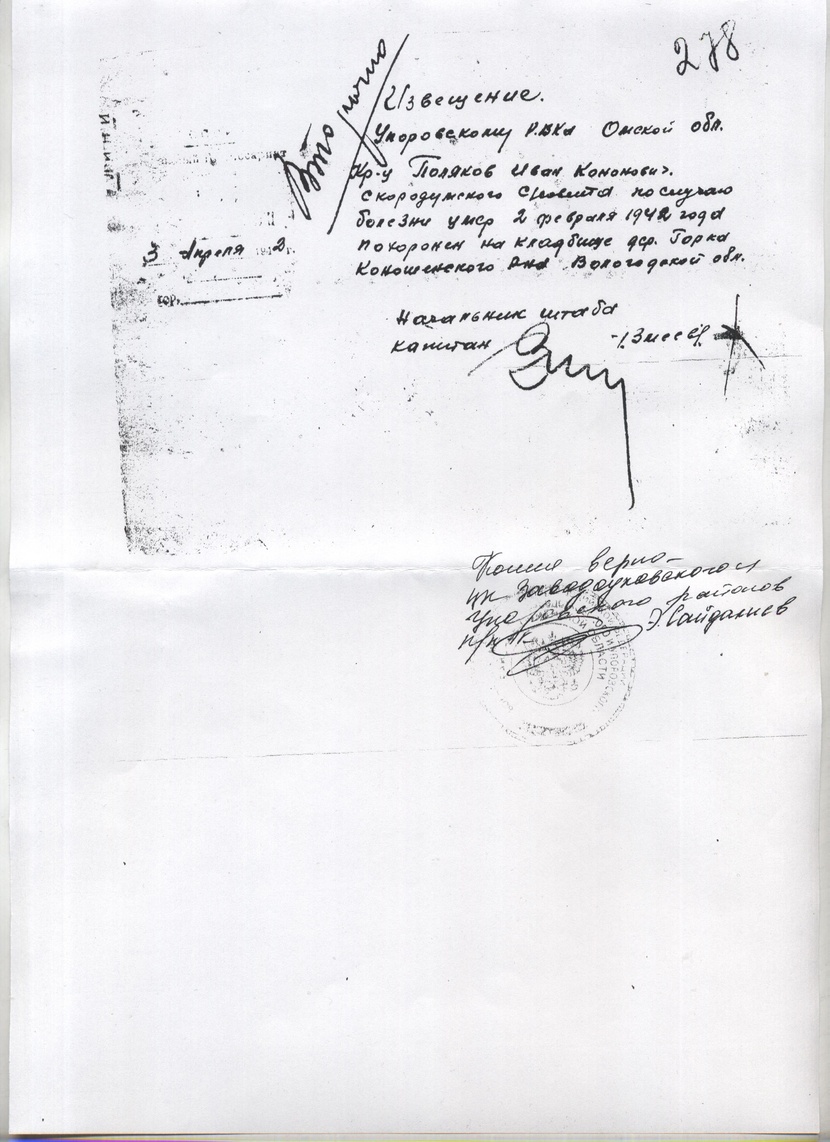 278
Вторично
Извещение.
Упоровскому Р.ВКа Омской обл.
Кр-у Поляков Иван Кононович.
Скородумского С/Совета по случаю
болезни умер 2 февраля 1942 года
похоронен на кладбище дер. Горка
Коношенского р-на Вологодской обл.
3 Апреля 2
гор.
Начальник штаба
капитан /Змеев/
Копия верна
Заводоуковского и
Упоровского районов
п/п-к Э. Сайдашев
ОБЛАСТИ